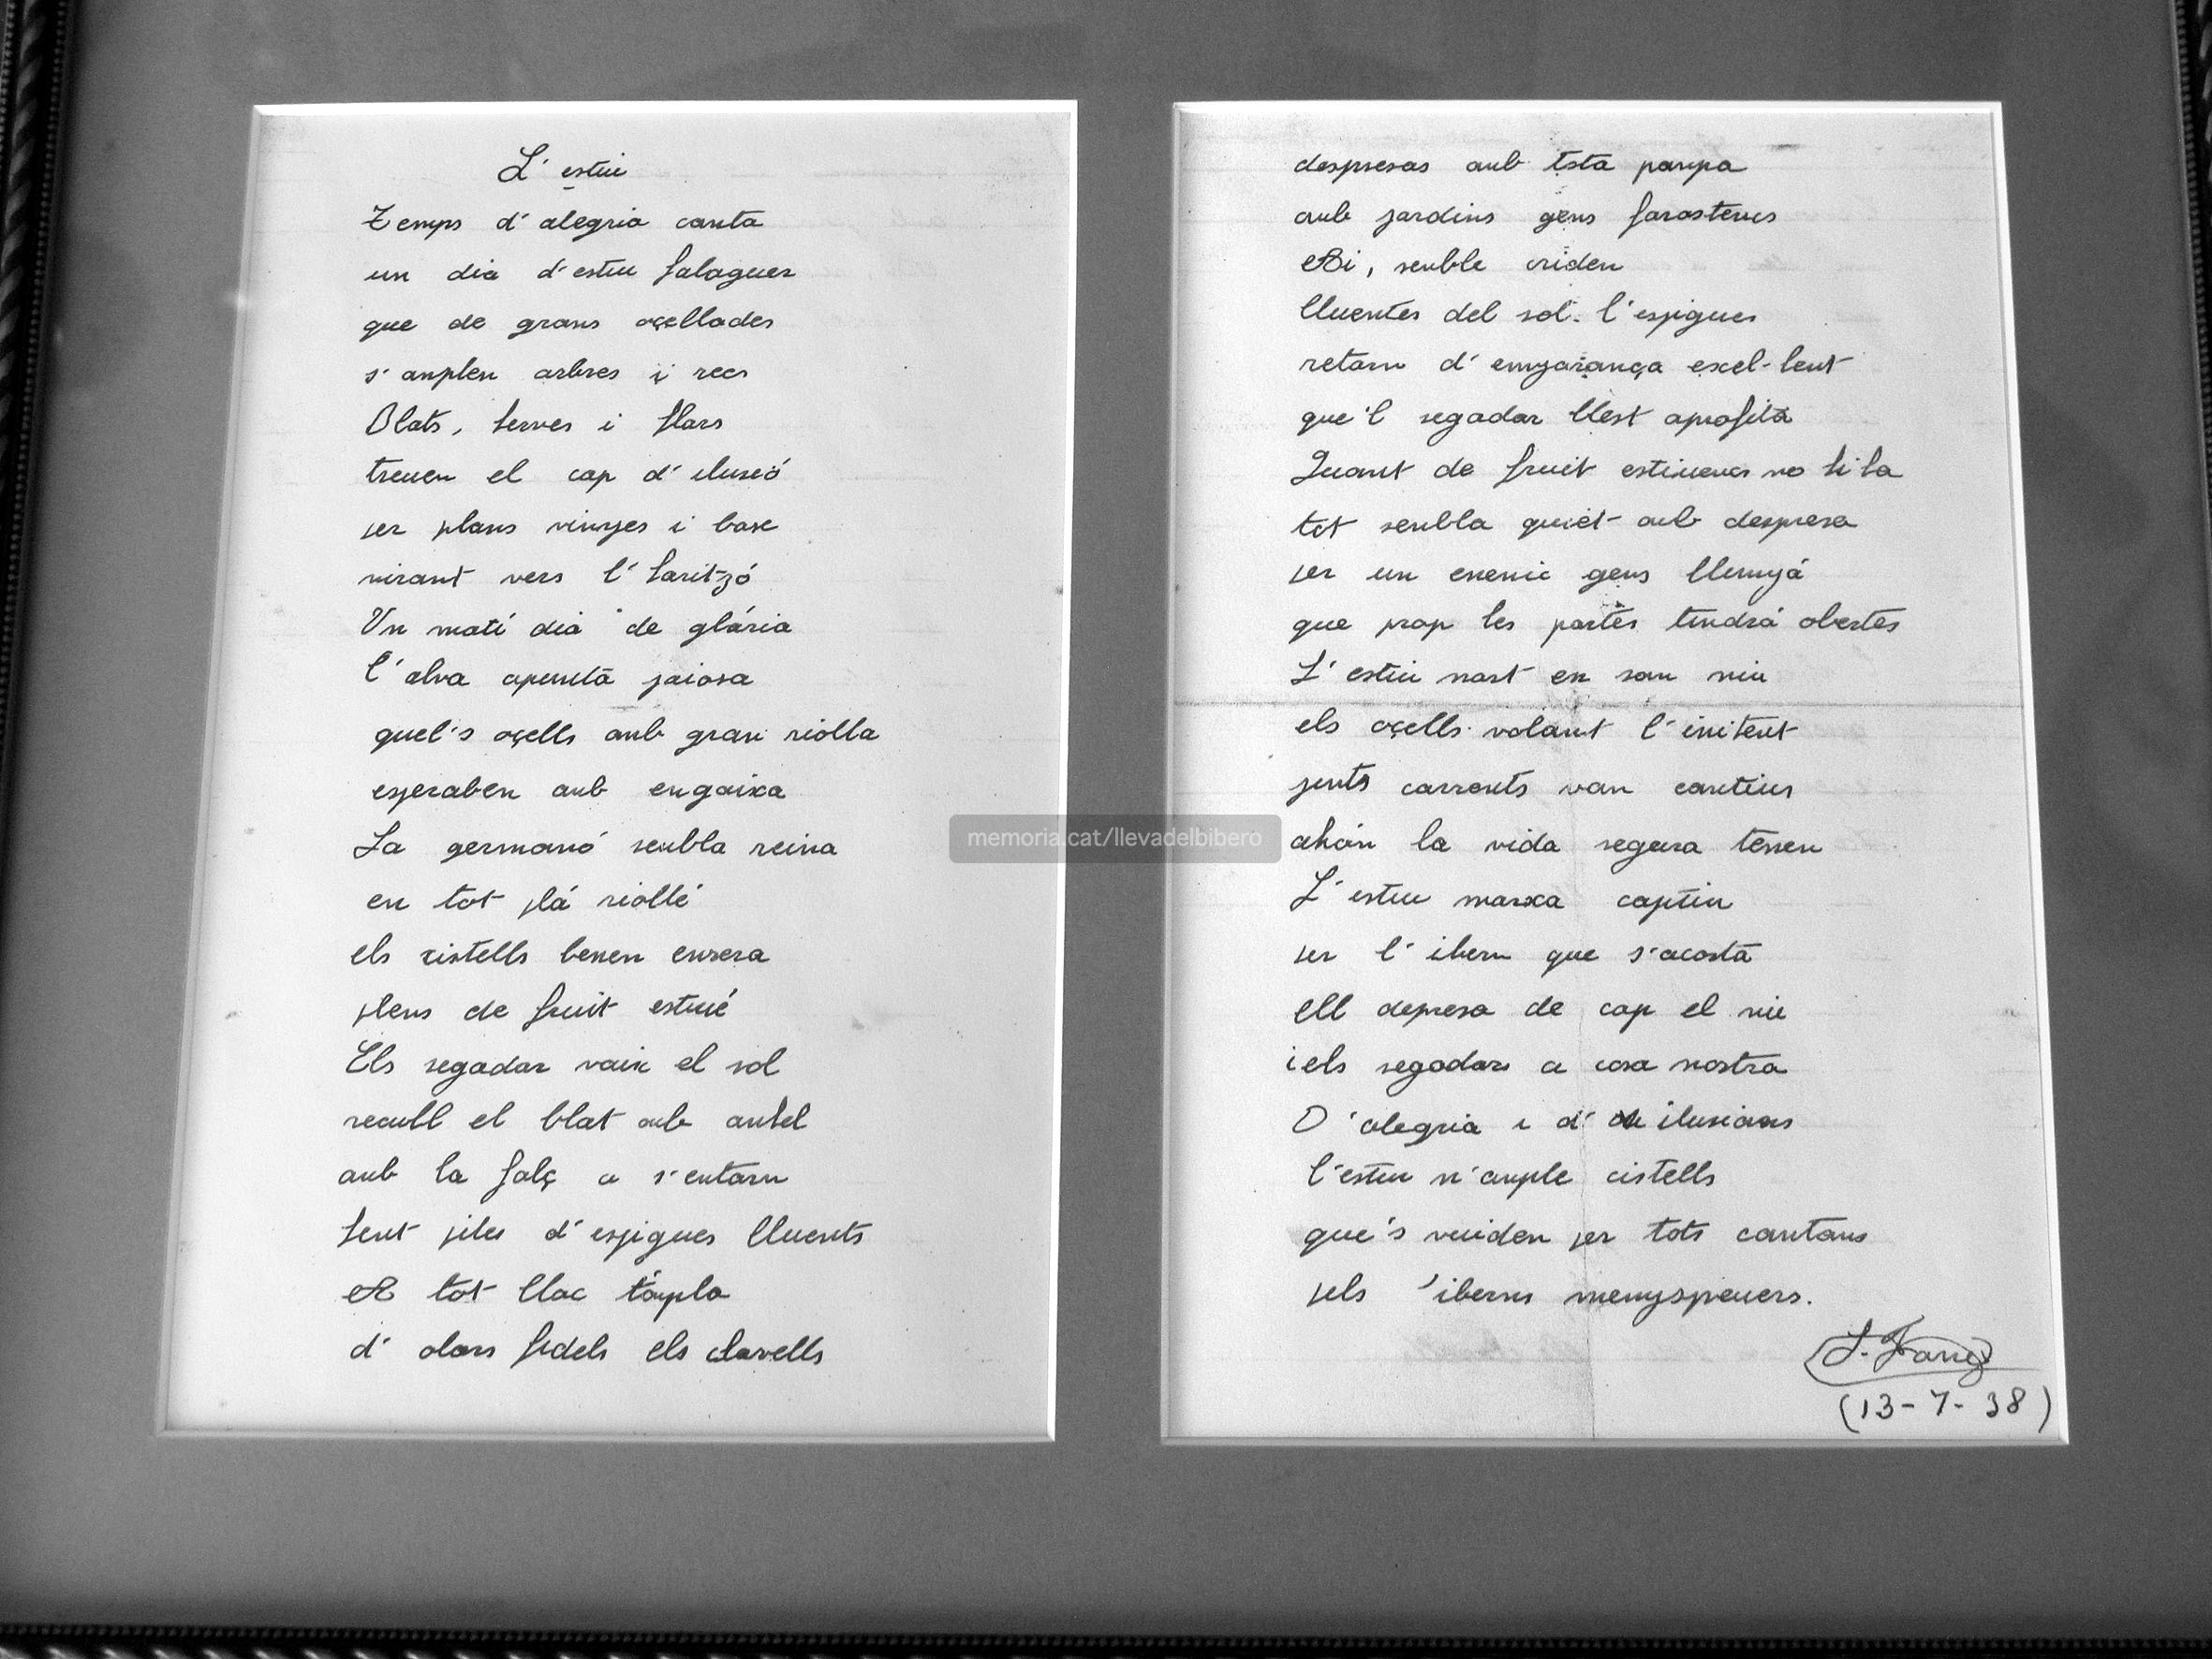 L'estiu
Temps d'alegria canta
un dia d'estiu falaguer
que de grans oçellades
s'amplen arbres i recs
Blats, herves i flors
treuen el cap d'ilusió
per plans vinyes i bosc
mirant vers l'horitzó
Un matí dia de glória
l'alva apunta joiosa
quel's oçells amb gran riolla
esperaben amb engoixa
La germanó sembla reina
en tot plá riollé
els cistells benen enrera
plens de fruit estiué
Els segador vaix el sol
recull el blat amb anhel
amb la falç a s'entorn
fent piles d'espigues lluents
A tot lloc tompla
d'olors fidels els clavells
despresas amb tota pompa
amb jardins gens forasteus
Bi, semble criden
lluentes del sol l'espigues
retorn d'enyorança excel-lent
que'l segador llest aprofita
Quant de fruit estiuenc no hi ha
tot sembla quiet amb despresa
per un enemic gens llunyá
que prop les portes tindrá obertes
L'estiu mort en son niu
els oçells volant l'imitent
junts corrents van cantius
ahón la vida segura tenen
L'estiu marxa captiu
per l'ibern que s'acosta
ell depresa de cap el niu
i els segadors a casa nostra
D'alegria i d' ilusions
l'estiu n'ample cistells
que's vuiden per tots cantons
pels 'iberns menyspreuers.
J. Farré
(13-7-38)
memoria.cat/llevadelbibero